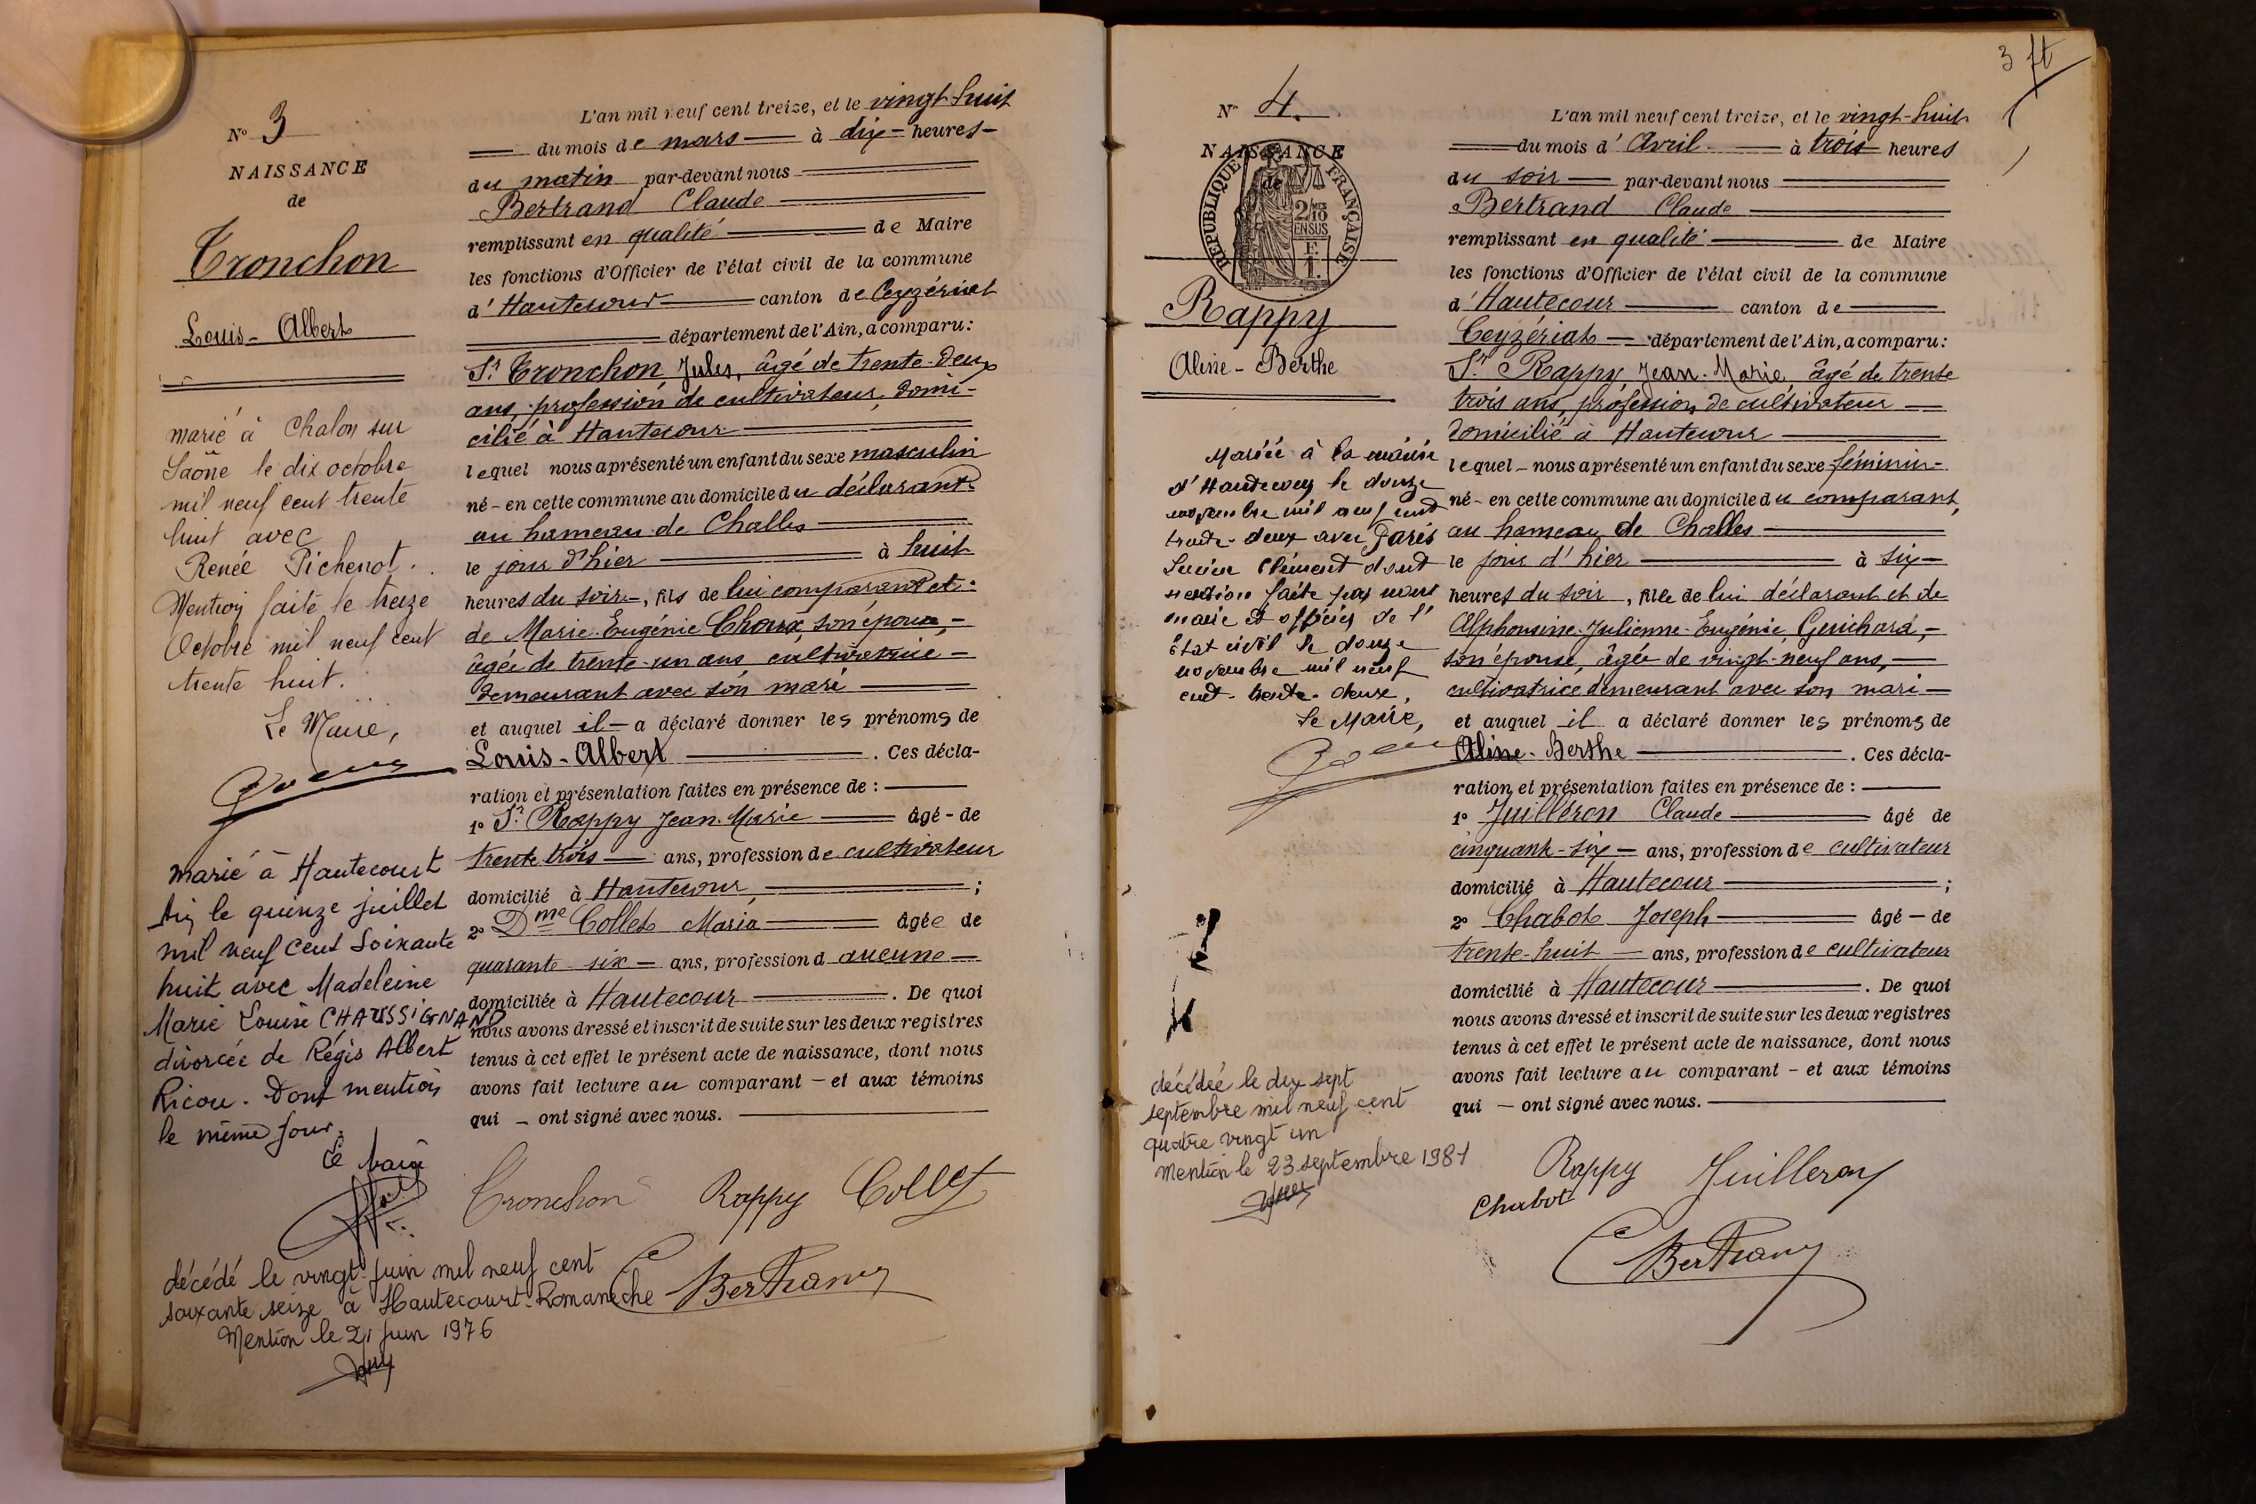 N° 3
NAISSANCE
de
Tronchon
Louis-Albert
marié à Chalon sur
Saône le dix octobre
mil neuf cent trente
huit avec
Renée Pichenot.
Mention faite le treize
Octobre mil neuf cent
trente huit.
Le Maire,
marié à Hautecourt
Ain le quinze juillet
mil neuf cent soixante
huit avec Madeleine
Marie Louise CHAUSSIGNAND
divorcée de Régis Albert
Ricou. Dont mention
le même jour.
Le Maire
décédé le vingt juin mil neuf cent
soixante seize à Hautecourt-Romanèche
Mention le 21 juin 1976
L'an mil neuf cent treize, et le vingt huit
du mois de mars à dix heures
du matin par-devant nous
Bertrand Claude
remplissant en qualité de Maire
les fonctions d'Officier de l'état civil de la commune
d'Hautecour canton de Ceyzériat
département de l'Ain, a comparu:
Sr Tronchon Jules, âgé de trente-deux
ans, profession de cultivateur, domi-
cilié à Hautecour
lequel nous a présenté un enfant du sexe masculin
né - en cette commune au domicile du déclarant
au hameau de Challes
le jour d'hier à huit
heures du soir, fils de lui comparant et
de Marie-Eugénie Choux, son épouse,
âgée de trente-un ans cultivatrice
demeurant avec son mari
et auquel il a déclaré donner les prénoms de
Louis-Albert. Ces décla-
ration et présentation faites en présence de :
1° Sr Rappy Jean-Marie âgé - de
trente trois ans, profession de cultivateur
domicilié à Hautecour, ;
2° Dme Collet Maria âgée de
quarante six ans, profession d aucune
domiciliée à Hautecour. De quoi
nous avons dressé et inscrit de suite sur les deux registres
tenus à cet effet le présent acte de naissance, dont nous
avons fait lecture au comparant - et aux témoins
qui - ont signé avec nous.
Tronchon Rappy Collet
C Bertrand
3 ft
N° 4.
NAISSANCE
de
RÉPUBLIQUE FRANÇAISE
2/10
EN SUS
F.
1.
Rappy
Aline-Berthe
Mariée à la mairie
d'Hautecour le douze
novembre mil neuf cent
trente-deux avec Paris
Lucien Clément dont
mention faite par nous
maire et officier de l'
Etat civil le douze
novembre mil neuf
cent-trente-deux.
Le Maire,
décédée le dix sept
septembre mil neuf cent
quatre vingt un
Mention le 23 septembre 1981
L'an mil neuf cent treize, et le vingt-huit
du mois d'Avril à trois heures
du soir par-devant nous
Bertrand Claude
remplissant en qualité de Maire
les fonctions d'Officier de l'état civil de la commune
d'Hautecour canton de
Ceyzériat département de l'Ain, a comparu:
Sr Rappy Jean-Marie âgé de trente
trois ans, profession de cultivateur
domicilié à Hautecour
lequel - nous a présenté un enfant du sexe féminin
né - en cette commune au domicile du comparant,
au hameau de Challes
le jour d'hier à six
heures du soir, fille de lui déclarant et de
Alphonsine-Julienne-Eugénie Guichard,
son épouse, âgée de vingt-neuf ans,
cultivatrice demeurant avec son mari
et auquel il a déclaré donner les prénoms de
Aline-Berthe. Ces décla-
ration et présentation faites en présence de :
1° Juilleron Claude âgé de
cinquante-six ans, profession de cultivateur
domicilié à Hautecour ;
2° Chabot Joseph âgé - de
trente-huit ans, profession de cultivateur
domicilié à Hautecour. De quoi
nous avons dressé et inscrit de suite sur les deux registres
tenus à cet effet le présent acte de naissance, dont nous
avons fait lecture au comparant - et aux témoins
qui - ont signé avec nous.
Rappy Juilleron
Chabot
C Bertrand